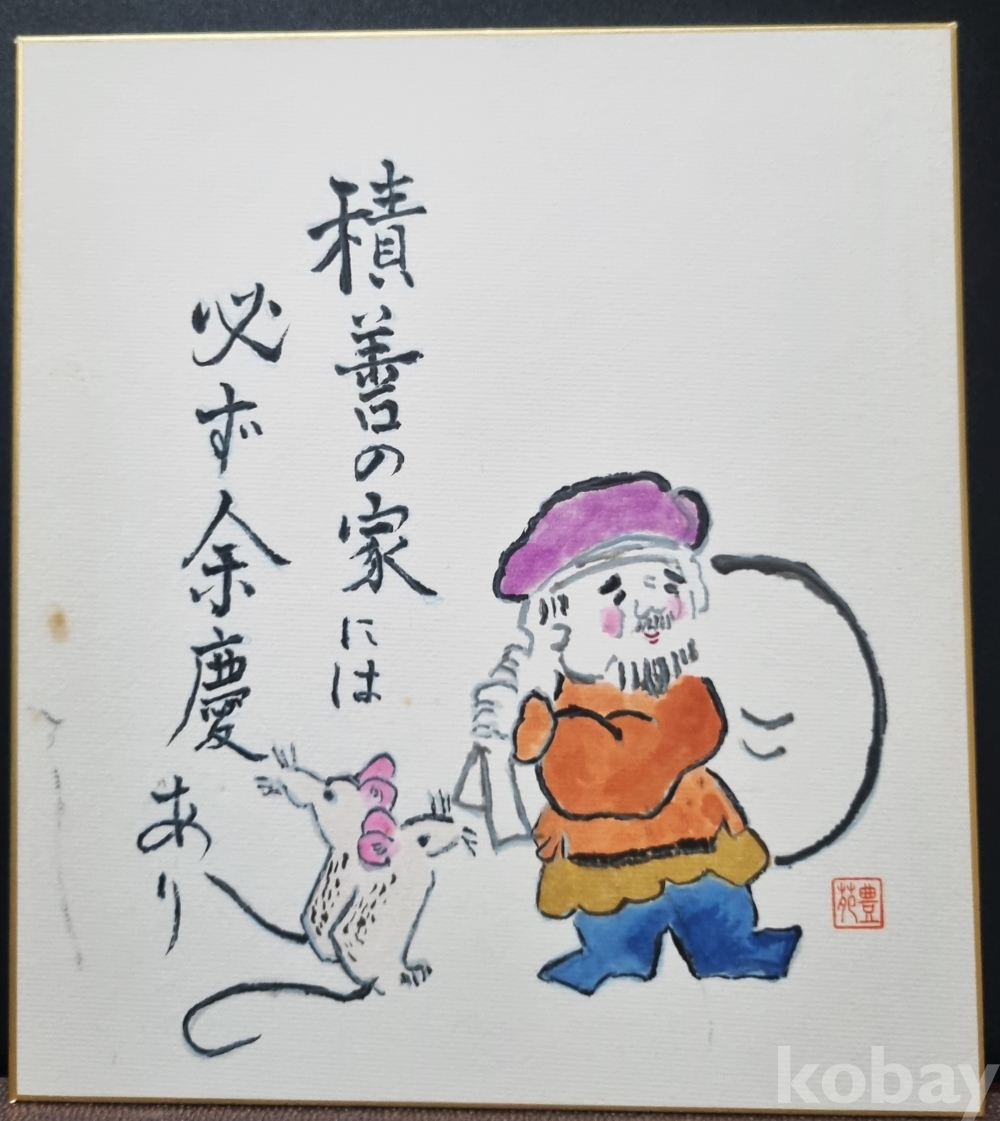 積善の家には
必ず余慶あり
豊苑
kobay